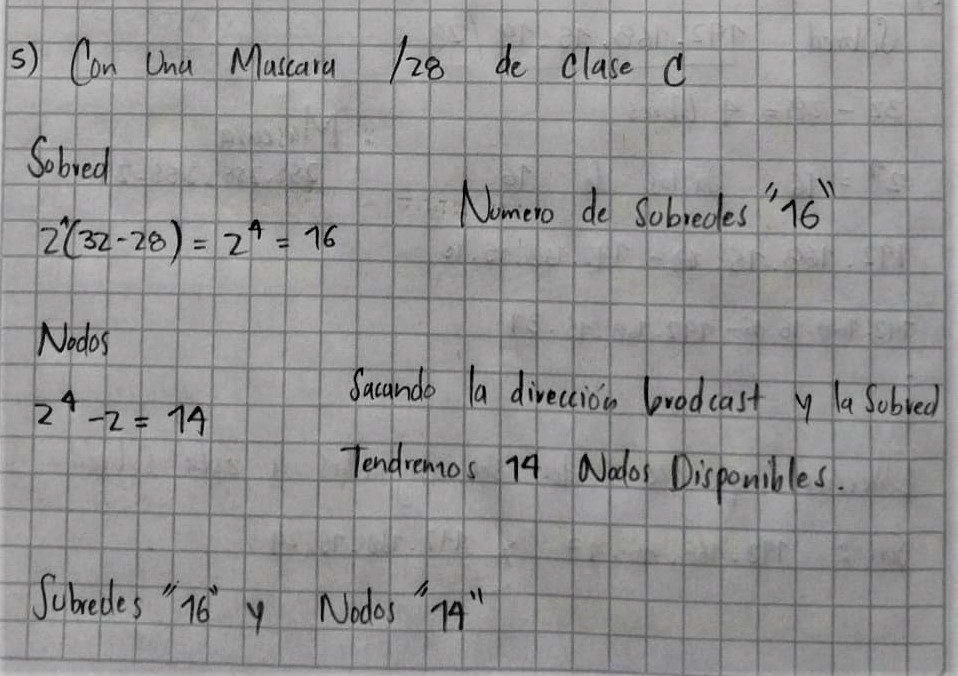 5) Con Una Mascara /28 de Clase C
Sobred
2^(32-28) = 2^4 = 16
Numero de Sobredes "16"
Nodos
2^4 - 2 = 14
Sacando la dirección brodcast y la Sobred
Tendremos 14 Nodos Disponibles.
Subredes "16" y Nodos "14"